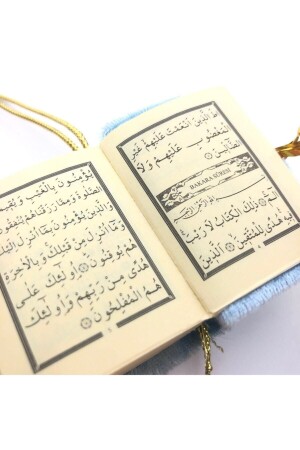 طَ الَّذِينَ أَنْعَمْتَ عَلَيْهِمْ غَيْرِ
الْمَغْضُوبِ عَلَيْهِمْ وَلَا
الضَّالِّينَ
BAKARA SÛRESİ
بِسْمِ اللَّهِ الرَّحْمَٰنِ الرَّحِيمِ
الٓمٓ ذَٰلِكَ الْكِتَابُ لَا رَيْبَ
فِيهِ هُدًى لِلْمُتَّقِينَ الَّذِينَ
يُؤْمِنُونَ بِالْغَيْبِ وَيُقِيمُونَ
الصَّلٰوةَ وَمِمَّا رَزَقْنَاهُمْ يُنْفِقُونَ
وَالَّذِينَ يُؤْمِنُونَ بِمَا أُنْزِلَ إِلَيْكَ
وَمَا أُنْزِلَ مِنْ قَبْلِكَ وَبِالْآخِرَةِ
هُمْ يُوقِنُونَ أُولَٰئِكَ عَلَى
هُدًى مِنْ رَبِّهِمْ وَأُولَٰئِكَ
هُمُ الْمُفْلِحُونَ